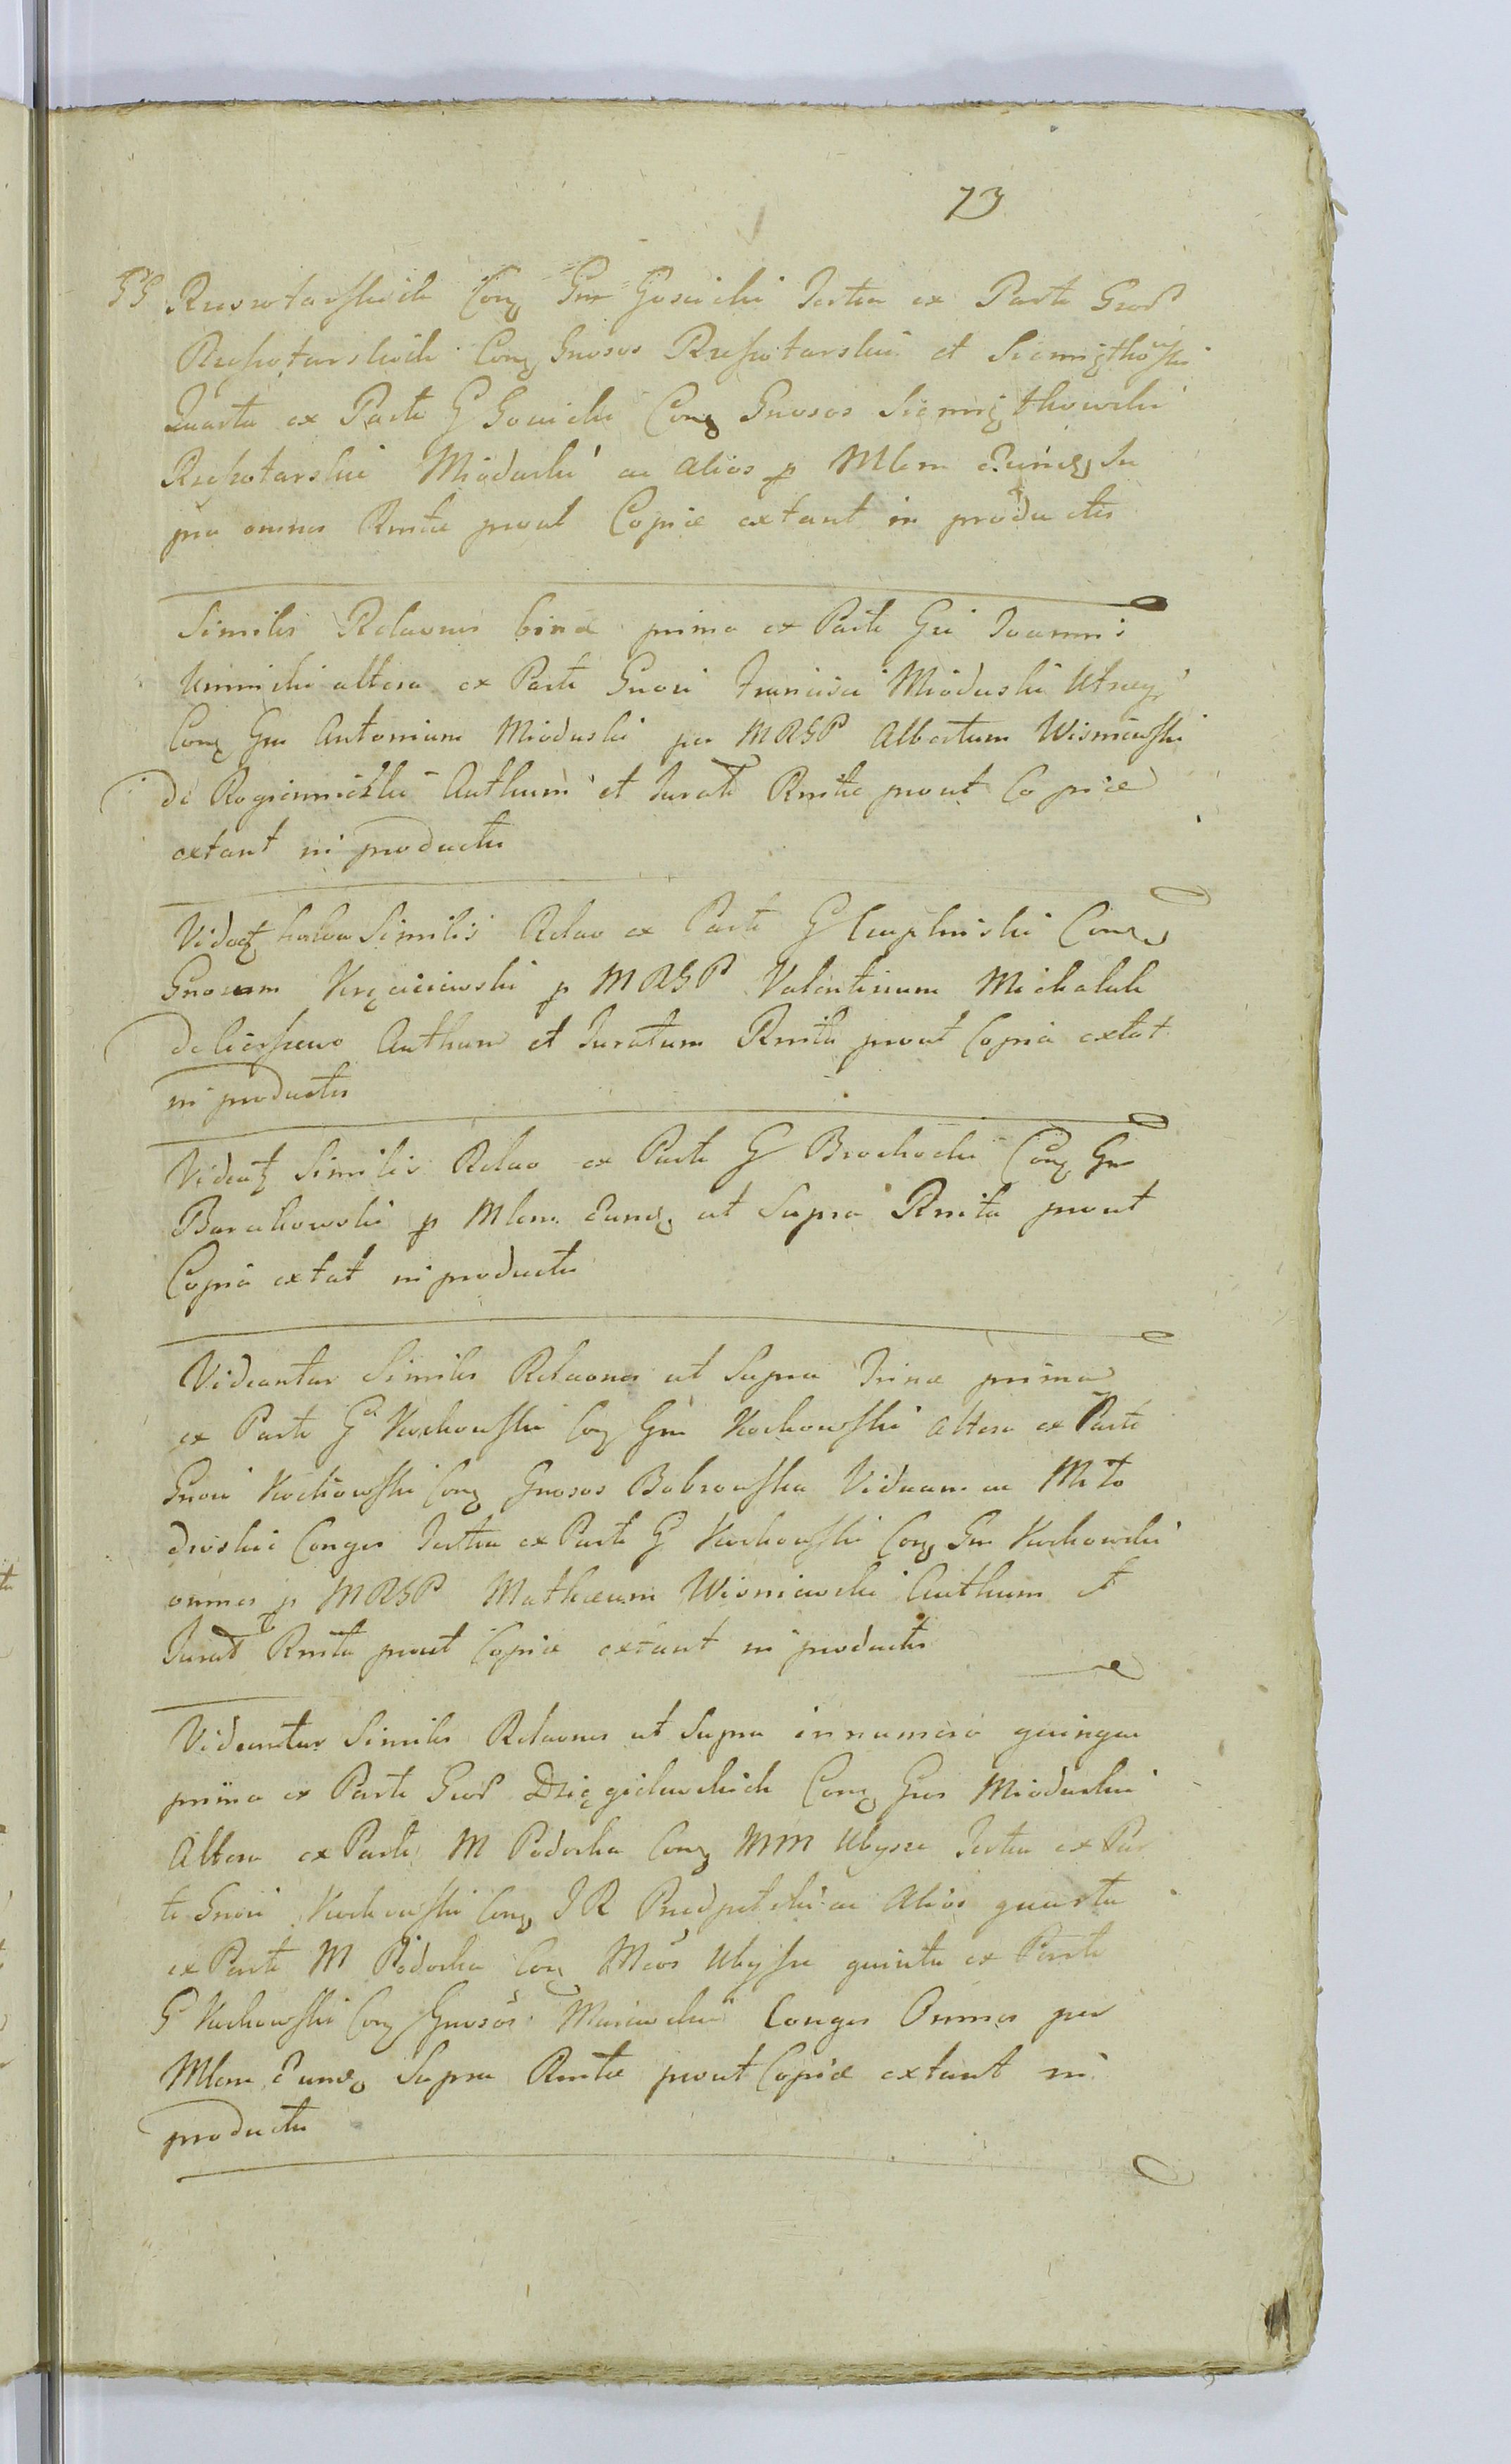 73
GG Rzeszotarskich Conq Gnm Gosicki Tertia ex Parte Gnor
Rzeszotarskich Conq Gnosos Rzeszotarskii et Siemiątkowski
Quarta ex Parte G Gosicki Conq Gnosos Siemiątkowski
Rzeszotarskii Mioduski ac alios p Mlem Eundq Su
pra omnes Rnitæ prout Copiæ extant in productis
Similes Relaones binæ prima ex Parte Gni Joannis
Uminski altera ex Parte Gnosi Francisci Mioduski Utraeq
Conq Gnm Antonium Mioduski per MRGP Albertum Wisniewski
de Rogienniczki Authum et Jurat Rnitæ prout Copiæ
extant in productis
Videatʒ Similis Relao ex Parte G Cieplinski Conq
Gnosum p MRGP Valentinum Michalak
de authum et Juratum Rnita prout Copia extat
in productis
Videatʒ Similis Relao ex Parte G Brochocki Conq Gnm
Barcikowski p Mlem Eundq ut Supra Rnita prout
Copia extat in productis
Videantur Similes Relaones ut Supra Trinæ prima
ex Parte G Kochowski Conq Gnm Kochowski altera ex Parte
Gnosi Kochowski Conq Gnosos Bobrowska Viduam ac Mło
dzoskie Conges Tertia ex Parte G Kochowski Conq Gnm Kochowski
omnes p MRGP Mathæum Wisniewski Authum et
Jurat Rnitæ prout Copiæ extant in productis
Videantur Similes Relaones ut Supra in numero quinque
prima ex Parte Gnor Dzięgielewskich Conq Gnos Mioduskie
Altera ex Parte M Podoska Conq MM Ubysze Tertia ex Par
te Gnosi Kochowski Conq JR Przedpelski ac Alios quarta
ex Parte M Podoska Conq Mcos Ubysze quinta ex Parte
G Kochowski Conq Gnosos Conges Omnes per
Mlem Eundq Supra Rnitæ prout Copiæ extant in
productis